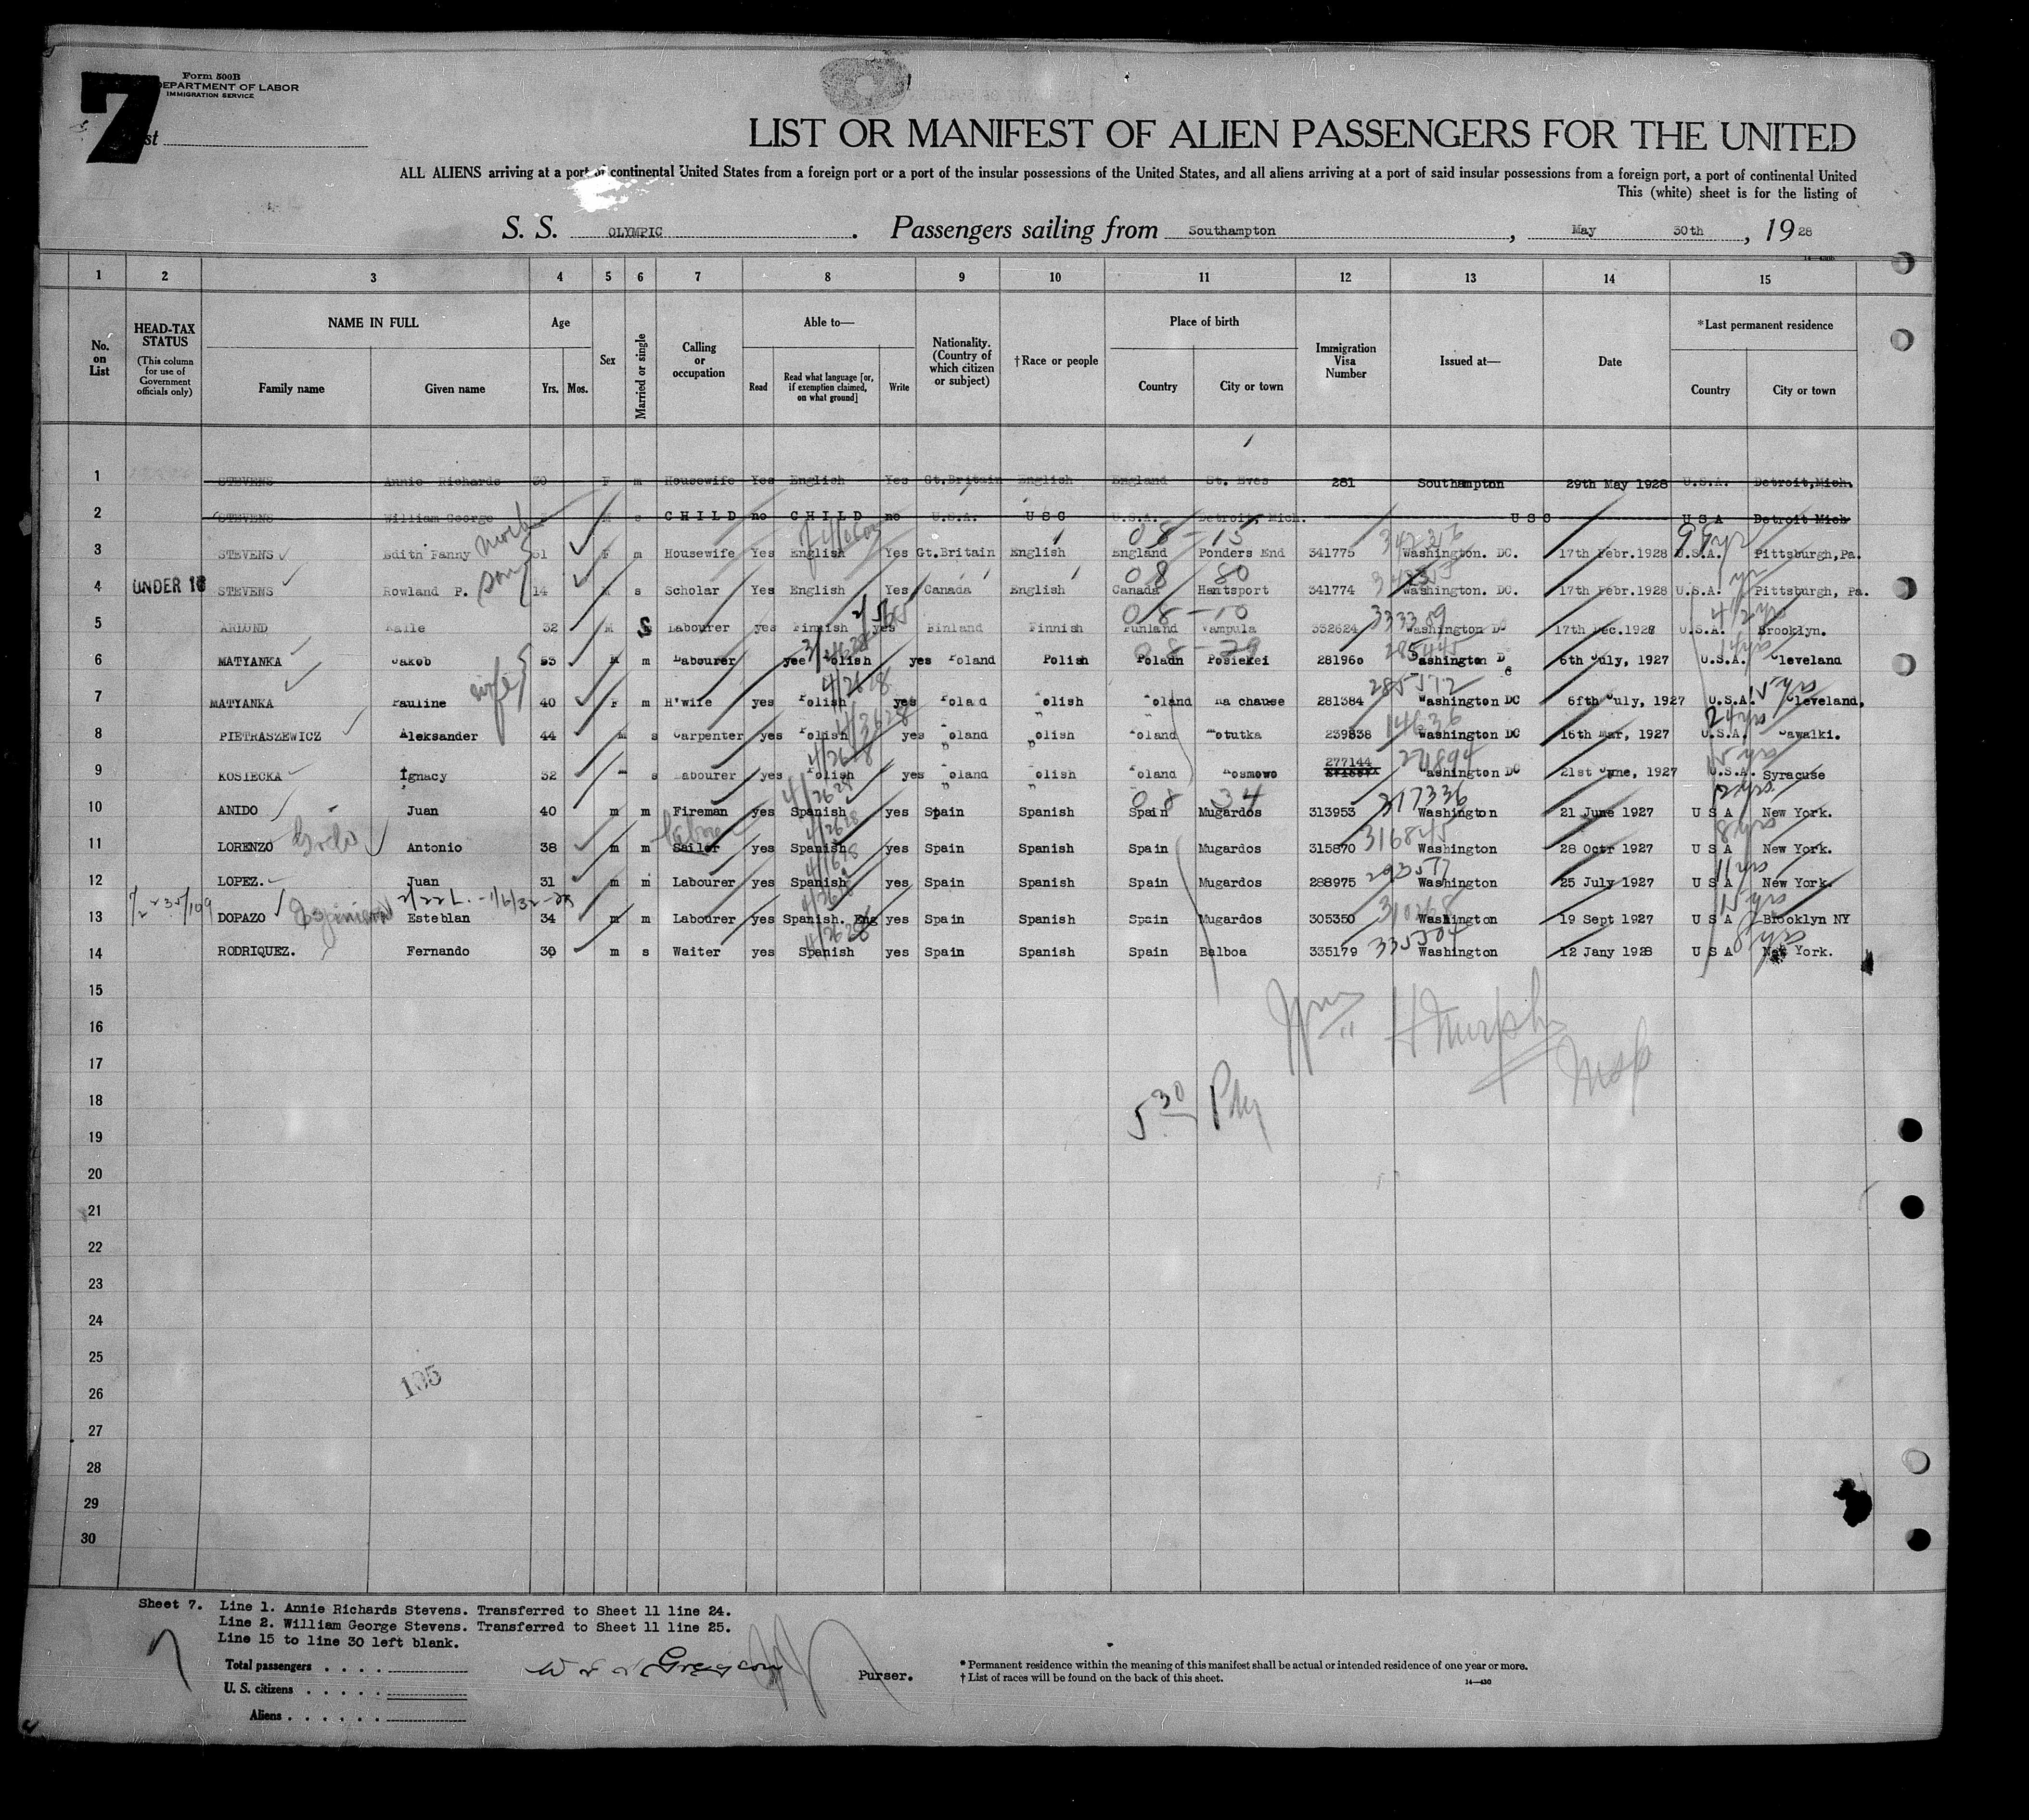 7
Form 500B
DEPARTMENT OF LABOR
IMMIGRATION SERVICE
LIST OR MANIFEST OF ALIEN PASSENGERS FOR THE UNITED
ALL ALIENS arriving at a port of continental United States from a foreign port or a port of the insular possessions of the United States, and all aliens arriving at a port of said insular possessions from a foreign port, a port of continental United
This (white) sheet is for the listing of
S. S. OLYMPIC. Passengers sailing from Southampton, May 30th, 1928
1 2 3 4 5 6 7 8 9 10 11 12 13 14 15
No. on List
HEAD-TAX STATUS (This column for use of Government officials only)
NAME IN FULL
Family name Given name
Age
Yrs. Mos.
Sex
Married or single
Calling or occupation
Able to—
Read Read what language [or, if exemption claimed, on what ground] Write
Nationality. (Country of which citizen or subject)
†Race or people
Place of birth
Country City or town
Immigration Visa Number
Issued at—
Date
*Last permanent residence
Country City or town
1 STEVENS Annie Richards 30 F m Housewife Yes English Yes Gt.Britain English England St. Eves 281 Southampton 29th May 1928 U.S.A. Detroit,Mich.
2 STEVENS William George M s CHILD no CHILD no U.S.A. USC U.S.A. Detroit Mich. USC USA Detroit Mich
3 STEVENS Edith Fanny 51 F m Housewife Yes English Yes Gt.Britain English England Ponders End 341775 Washington. DC. 17th Febr.1928 U.S.A. Pittsburgh,Pa.
4 UNDER 16 STEVENS Rowland P. son 14 M s Scholar Yes English Yes Canada English Canada Hantsport 341774 Washington. DC. 17th Febr.1928 U.S.A. Pittsburgh, Pa.
5 ARLUND Kalle 32 M S Labourer yes Finnish yes Finland Finnish Funland Vampula 332624 333389 Washington DC 17th Dec.1928 U.S.A. Brooklyn.
6 MATYANKA Jakob 53 M m Labourer yes Polish yes Poland Polish Poladn Posiekei 281960 285445 Washington D 6th July, 1927 U.S.A. Cleveland
7 MATYANKA Pauline wife 40 F m H'wife yes Polish yes Polish Poland na chause 281384 285572 Washington DC 6fth July, 1927 U.S.A. Cleveland,
8 PIETRASZEWICZ Aleksander 44 m s Carpenter yes Polish yes Poland Polish Poland Motutka 239838 Washington DC 16th Mar, 1927 U.S.A. Sawalki.
9 KOSIECKA Ignacy 32 s Labourer yes Polish yes Poland Polish Poland Kosmowo 277144 Washington DC 21st June, 1927 U.S.A. Syracuse
10 ANIDO Juan 40 m m Fireman yes Spanish yes Spain Spanish Spain Mugardos 313953 317336 Washington 21 June 1927 U S A New York.
11 LORENZO Antonio 38 m m Sailer yes Spanish yes Spain Spanish Spain Mugardos 315870 316845 Washington 28 Octr 1927 U S A New York.
12 LOPEZ. Juan 31 m m Labourer yes Spanish yes Spain Spanish Spain Mugardos 288975 293577 Washington 25 July 1927 U S A New York.
13 DOPAZO Esteblan 34 m m Labourer yes Spanish. Eng yes Spain Spanish Spain Mugardos 305350 310268 Washington 19 Sept 1927 U S A Brooklyn NY
14 RODRIQUEZ. Fernando 30 m s Waiter yes Spanish yes Spain Spanish Spain Balboa 335179 335504 Washington 12 Jany 1928 U S A New York.
15
16
17
18
19
20
21
22
23
24
25
26
27
28
29
30
5 30
195
Sheet 7. Line 1. Annie Richards Stevens. Transferred to Sheet 11 line 24.
Line 2. William George Stevens. Transferred to Sheet 11 line 25.
Line 15 to line 30 left blank.
Total passengers . . . .
U. S. citizens . . . . .
Aliens . . . . . .
Purser.
* Permanent residence within the meaning of this manifest shall be actual or intended residence of one year or more.
† List of races will be found on the back of this sheet.
14—430